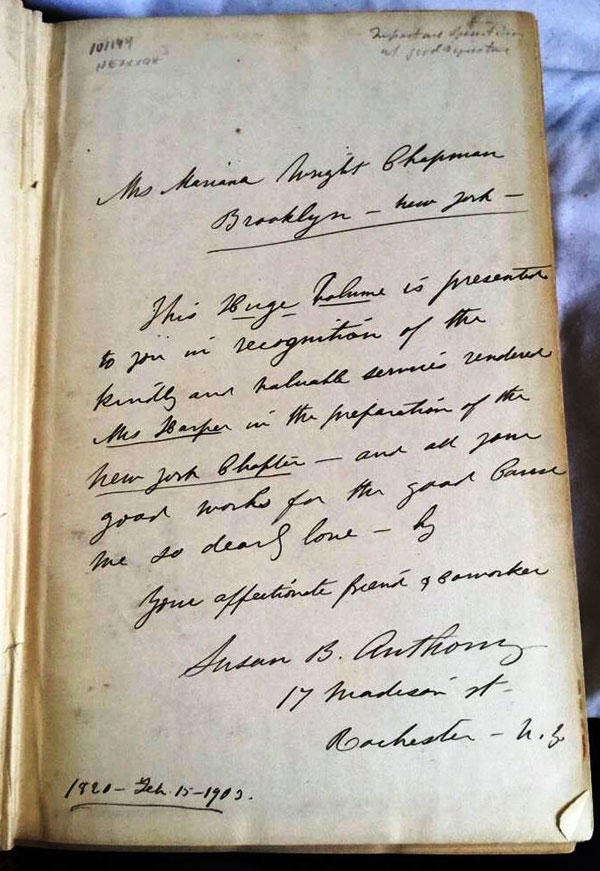 101199
Mrs Mariana Wright Chapman
Brooklyn – New York –
This Huge Volume is presented
to you in recognition of the
kindly and valuable services rendered
Mrs Harper in the preparation of the
New York Chapter – and all your
good works for the good Cause
we so dearly love – by
Your affectionate friend & coworker
Susan B. Anthony
17 Madison st.
Rochester – N. Y.
1820 – Feb. 15 – 1903.